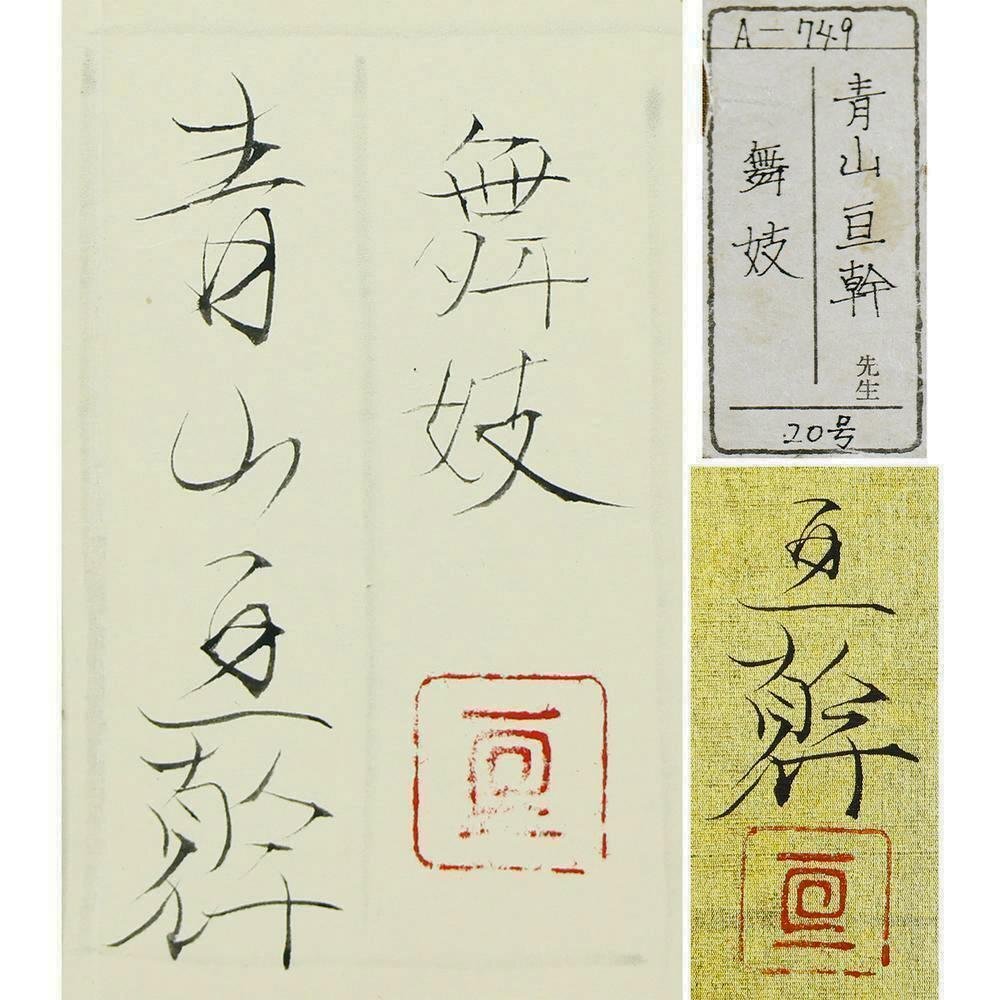 舞妓
青山亘幹
亘
A-749
青山亘幹先生
舞妓
20号
亘幹
亘